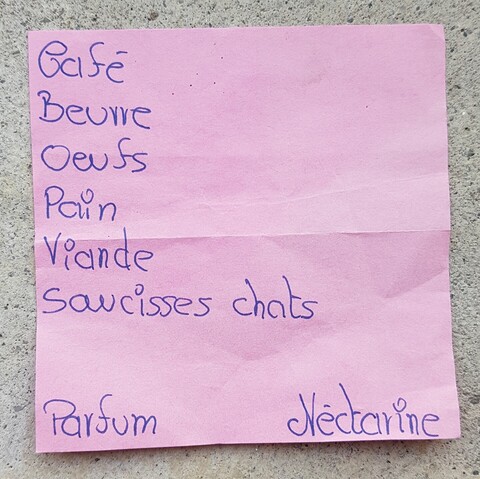 Café
Beurre
Oeufs
Pain
Viande
Saucisses chats
Parfum Néctarine